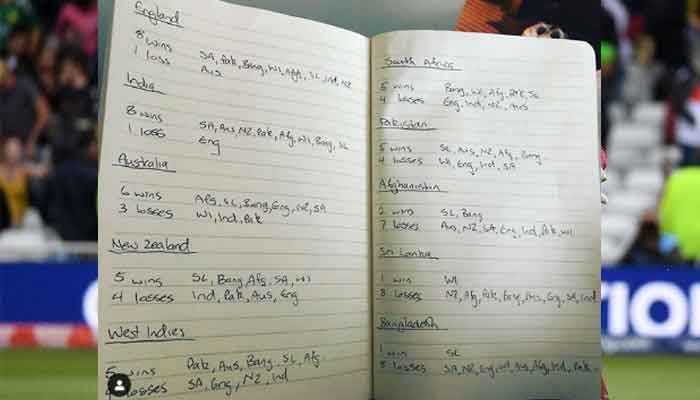 England
8 wins SA, Pak, Bang, WI, Afg, SL, Ind, NZ
1 loss Aus
India
8 wins SA, Aus, NZ, Pak, Afg, WI, Bang, SL
1 loss Eng
Australia
6 wins Afg, SL, Bang, Eng, NZ, SA
3 losses WI, Ind, Pak
New Zealand
5 wins SL, Bang, Afg, SA, WI
4 losses Ind, Pak, Aus, Eng
West Indies
5 wins Pak, Aus, Bang, SL, Afg
losses SA, Eng, NZ, Ind
South Africa
5 wins Bang, WI, Afg, Pak, SL
4 losses Eng, Ind, NZ, Aus
Pakistan
5 wins SL, Aus, NZ, Afg, Bang
4 losses WI, Eng, Ind, SA
Afghanistan
2 wins SL, Bang
7 losses Aus, NZ, SA, Eng, Ind, Pak, WI
Sri Lanka
1 win WI
8 losses NZ, Afg, Pak, Bang, Aus, Eng, SA, Ind
Bangladesh
1 win SL
8 losses SA, NZ, Eng, WI, Aus, Afg, Ind, Pak